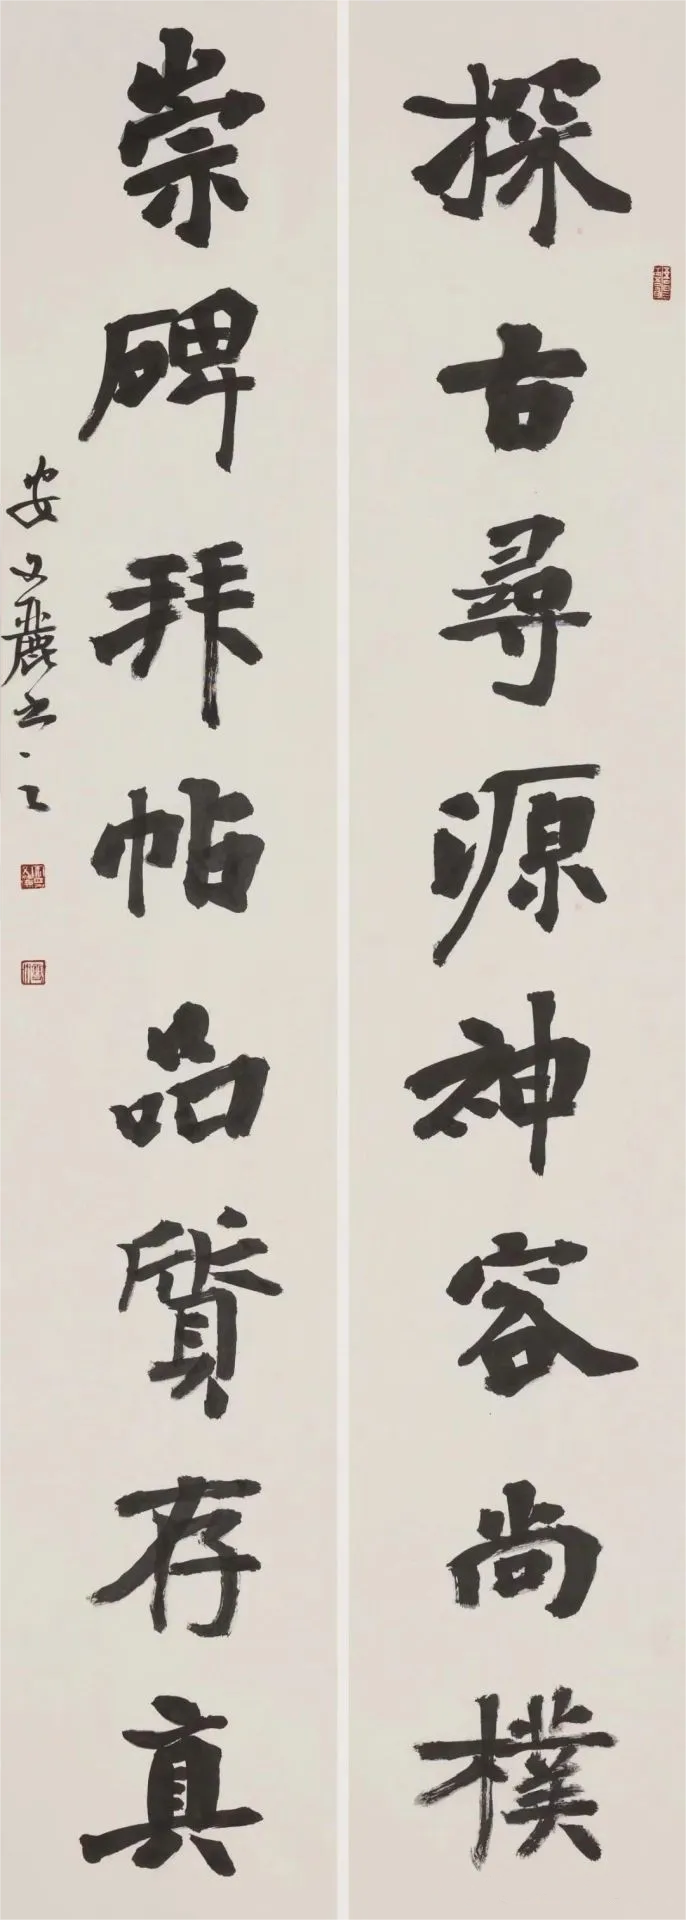 探古尋源神容尚樸
崇碑拜帖品質存真
安文麗書之